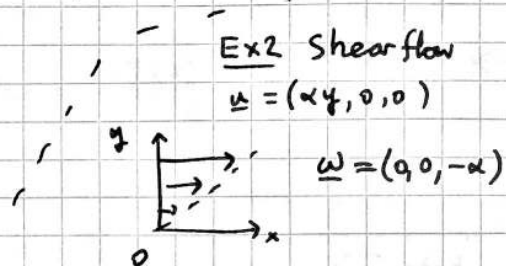 Ex2 Shear flow
u = (αy, 0, 0)
y
ω = (0, 0, -α)
x
0